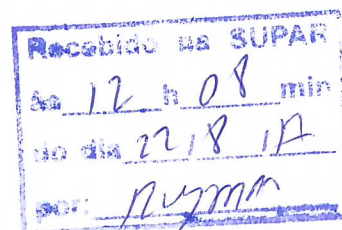 Recebido na SUPAR
às 12 h 08 min
do dia 22/8
por: